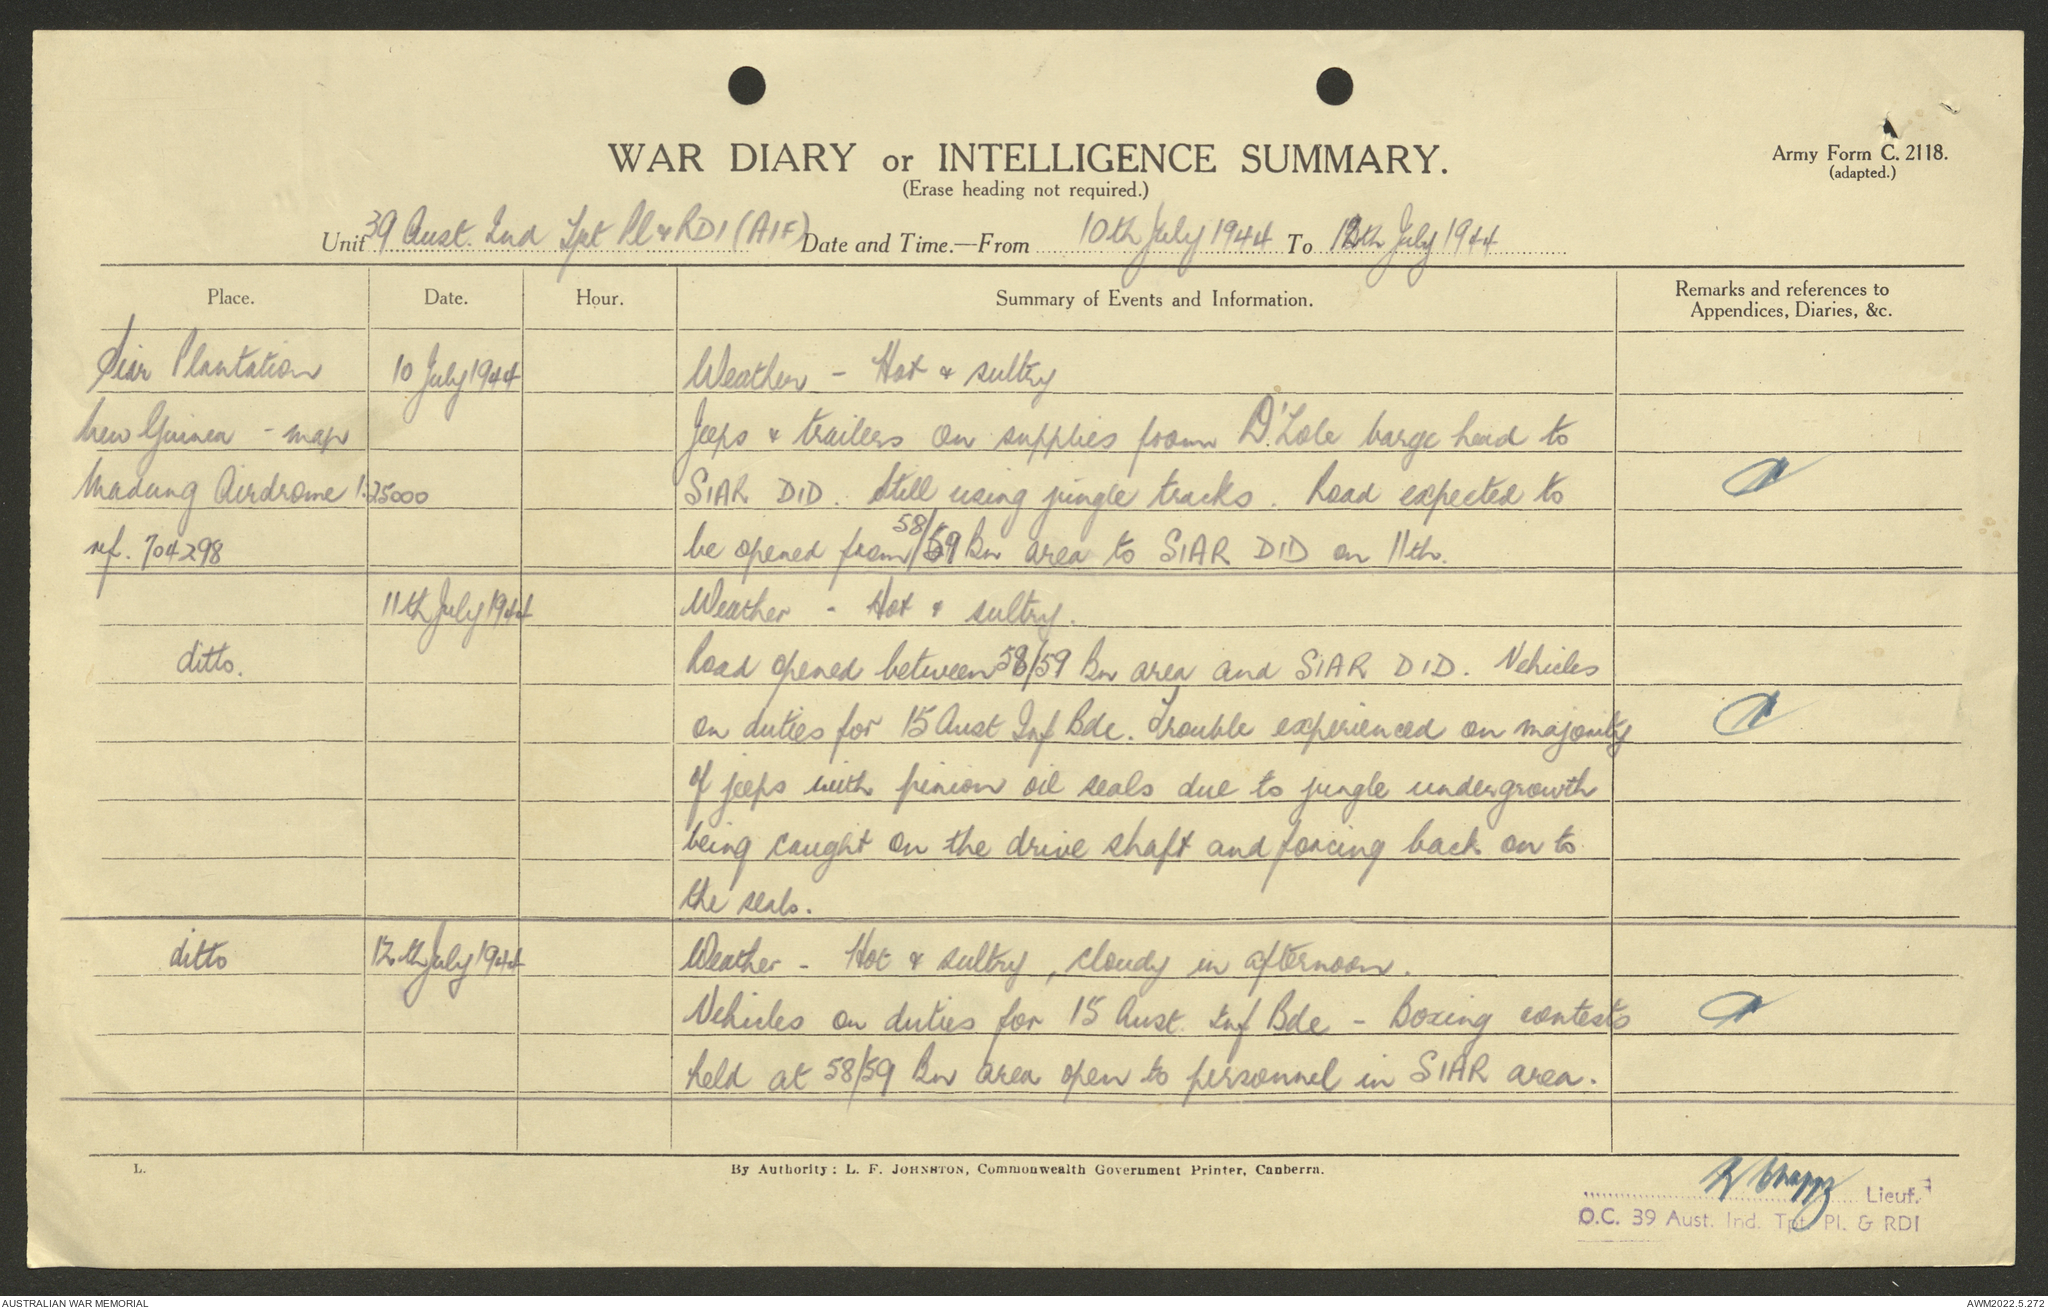 WAR DIARY or INTELLIGENCE SUMMARY.
Army Form C. 2118.
(adapted.)
(Erase heading not required.)
Unit 39 Aust. Ind Tpt Pl & RDI (AIF) Date and Time.—From 10th July 1944 To 12th July 1944
Place. Date. Hour. Summary of Events and Information. Remarks and references to
Appendices, Diaries, &c.
Siar Plantation 10 July 1944 Weather - Hot & sultry
New Guinea - map Jeeps & trailers on supplies from barge head to
Madang Airdrome 1:25000 SIAR DID. Still using jungle tracks. Road expected to
ref. 704298 be opened from 58/59 Bn area to SIAR DID on 11th.
11th July 1944 Weather - Hot & sultry.
ditto. Road opened between 58/59 Bn area and SIAR DID. Vehicles
on duties for 15 Aust Inf Bde. Trouble experienced on majority
of jeeps with pinion oil seals due to jungle undergrowth
being caught on the drive shaft and forcing back on to
the seals.
ditto 12th July 1944 Weather - Hot & sultry, cloudy in afternoon.
Vehicles on duties for 15 Aust. Inf Bde - Boxing contests
held at 58/59 Bn area open to personnel in SIAR area.
L. By Authority: L. F. JOHNSTON, Commonwealth Government Printer, Canberra.
Lieut.
O.C. 39 Aust. Ind. Tpt. Pl. & RDI
AUSTRALIAN WAR MEMORIAL AWM2022.5.272